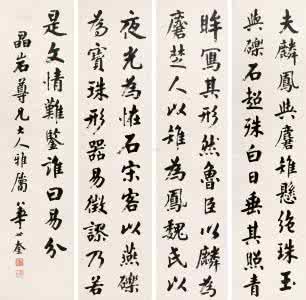 夫麟鳳與麏雉懸絕珠玉
與礫石超殊白日垂其照青
眸寫其形然魯臣以麟為
麏楚人以雉為鳳魏氏以
夜光為恠石宋客以燕礫
為寶珠形器易徵謬乃若
是文情難鑒誰曰易分
晶岩尊兄大人雅屬 華世奎